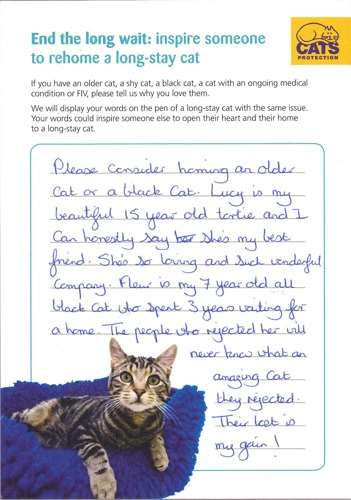 End the long wait: inspire someone
to rehome a long-stay cat
CATS
PROTECTION
If you have an older cat, a shy cat, a black cat, a cat with an ongoing medical
condition or FIV, please tell us why you love them.
We will display your words on the pen of a long-stay cat with the same issue.
Your words could inspire someone else to open their heart and their home
to a long-stay cat.
Please consider homing an older
Cat or a black Cat. Lucy is my
beautiful 15 year old tortie and I
Can honestly say she's my best
friend. She's so loving and such wonderful
Company. Fleur is my 7 year old all
black Cat who spent 3 years waiting for
a home. The people who rejected her will
never know what an
amazing Cat
they rejected.
Their lost is
my gain!